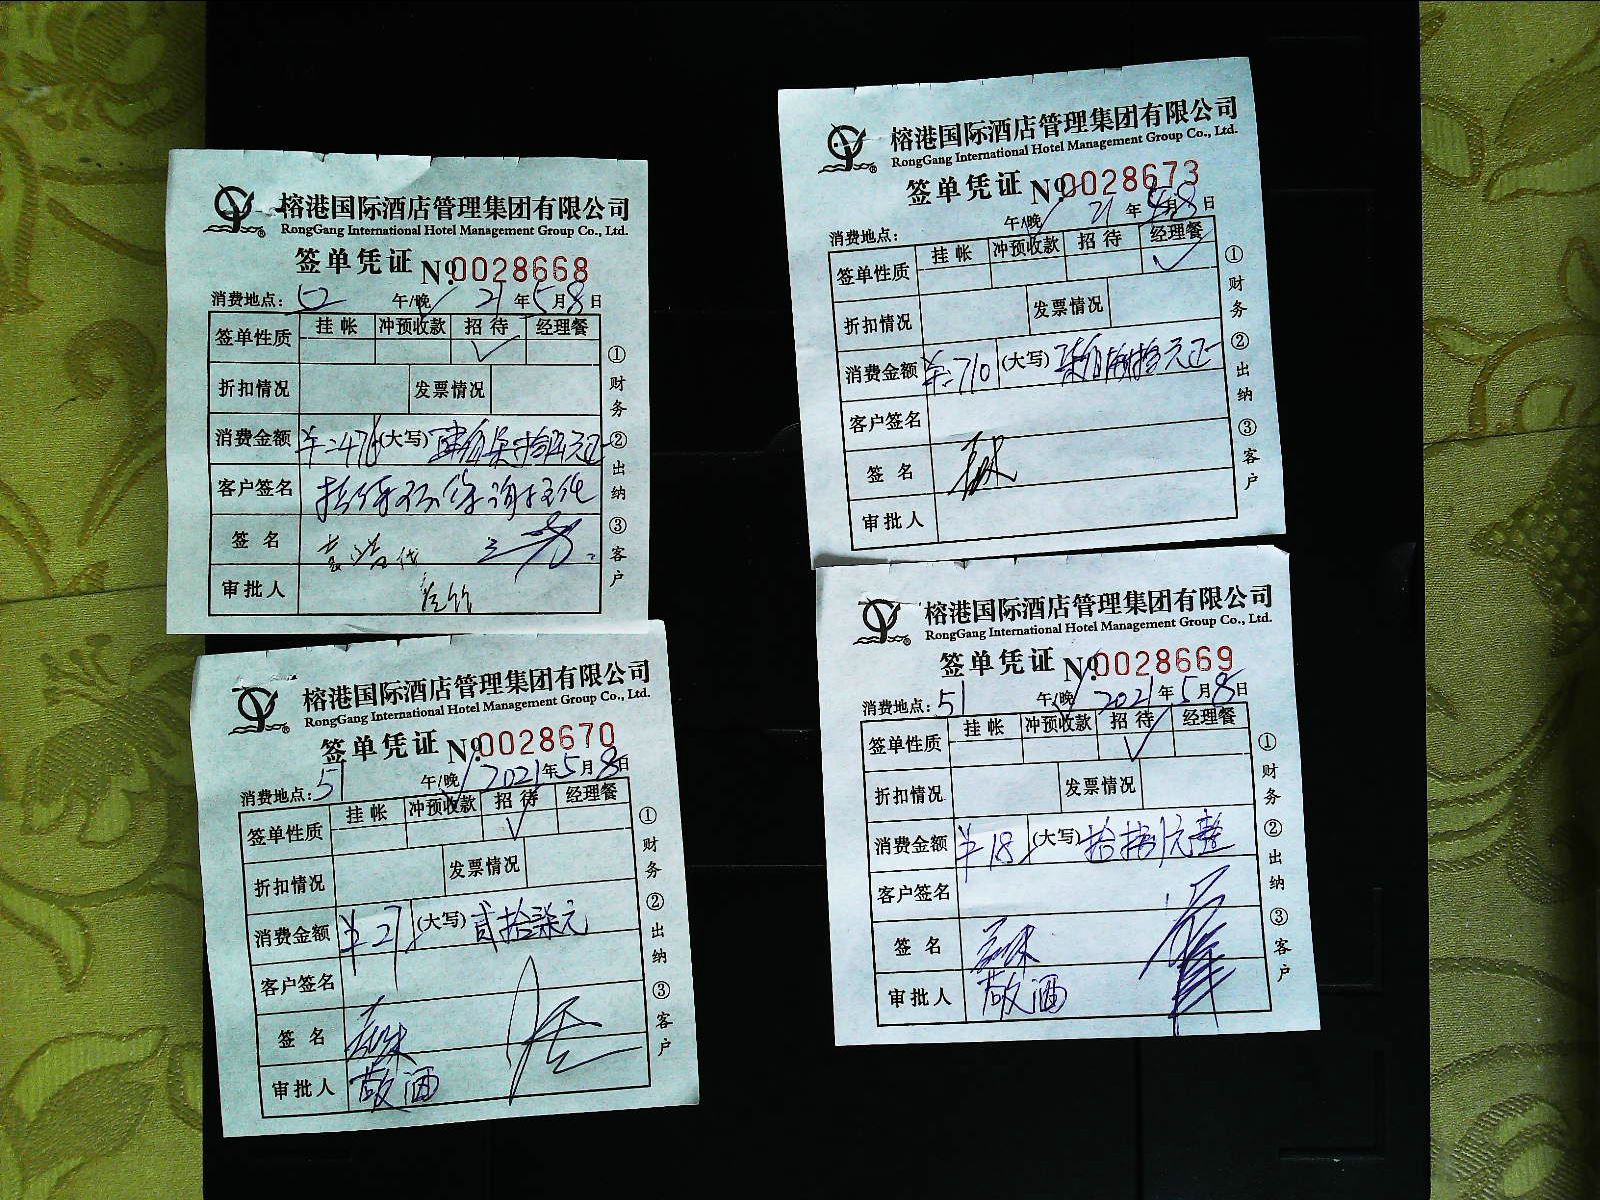 榕港国际酒店管理集团有限公司
RongGang International Hotel Management Group Co., Ltd.
签单凭证 No.0028668
消费地点：52 午/晚 21年5月8日
签单性质 挂帐 冲预收款 招待 经理餐
✓
折扣情况 发票情况
消费金额 ¥:476 (大写)
客户签名
签名
审批人
①财务 ②出纳 ③客户
榕港国际酒店管理集团有限公司
RongGang International Hotel Management Group Co., Ltd.
签单凭证 No.0028673
消费地点： 午/晚 21年5月8日
签单性质 挂帐 冲预收款 招待 经理餐
✓
折扣情况 发票情况
消费金额 ¥:710 (大写)
客户签名
签名
审批人
①财务 ②出纳 ③客户
榕港国际酒店管理集团有限公司
RongGang International Hotel Management Group Co., Ltd.
签单凭证 No.0028670
消费地点：51 午/晚 2021年5月8日
签单性质 挂帐 冲预收款 招待 经理餐
✓
折扣情况 发票情况
消费金额 ¥27 (大写) 贰拾柒元
客户签名
签名
审批人 敬酒
①财务 ②出纳 ③客户
榕港国际酒店管理集团有限公司
RongGang International Hotel Management Group Co., Ltd.
签单凭证 No.0028669
消费地点：51 午/晚 2021年5月8日
签单性质 挂帐 冲预收款 招待 经理餐
✓
折扣情况 发票情况
消费金额 ¥18 (大写) 拾捌元整
客户签名
签名
审批人 敬酒
①财务 ②出纳 ③客户